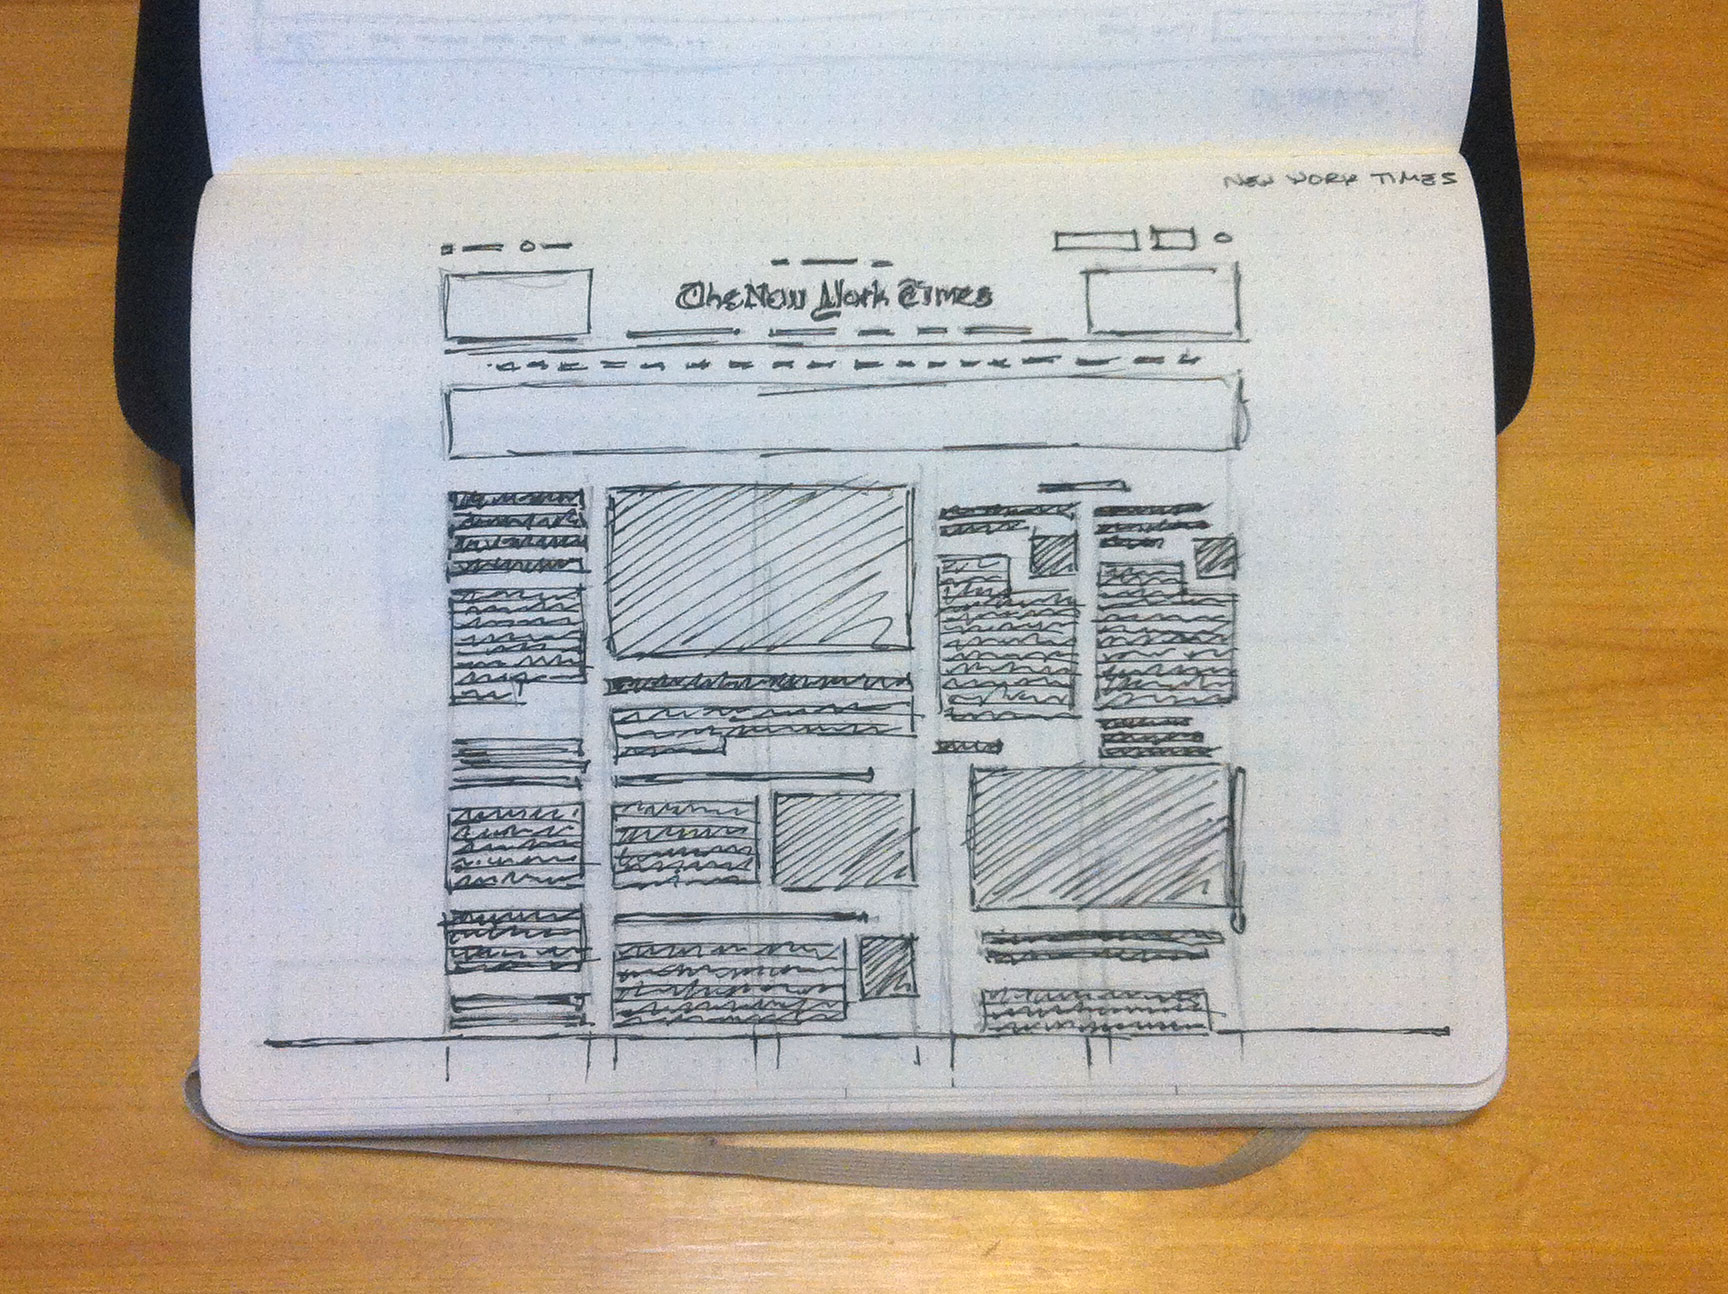 NEW YORK TIMES
The New York Times